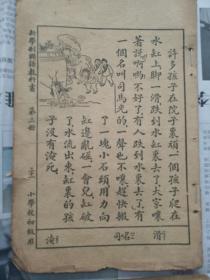 許多孩子在院子裏頑一個孩子爬在
水缸上脚一滑跌到水缸裏去了大家嚷
著説喲喲不好了有人跌到水裏去了有
一個名叫司馬光的一聲也不嚷趕快搬
了一塊小石頭用力向
缸邊亂磕一會兒缸破
了水流出來缸裏的孩
子没有淹死
滑
司
淹
新學制國語教科書 第三册
小學校初級用